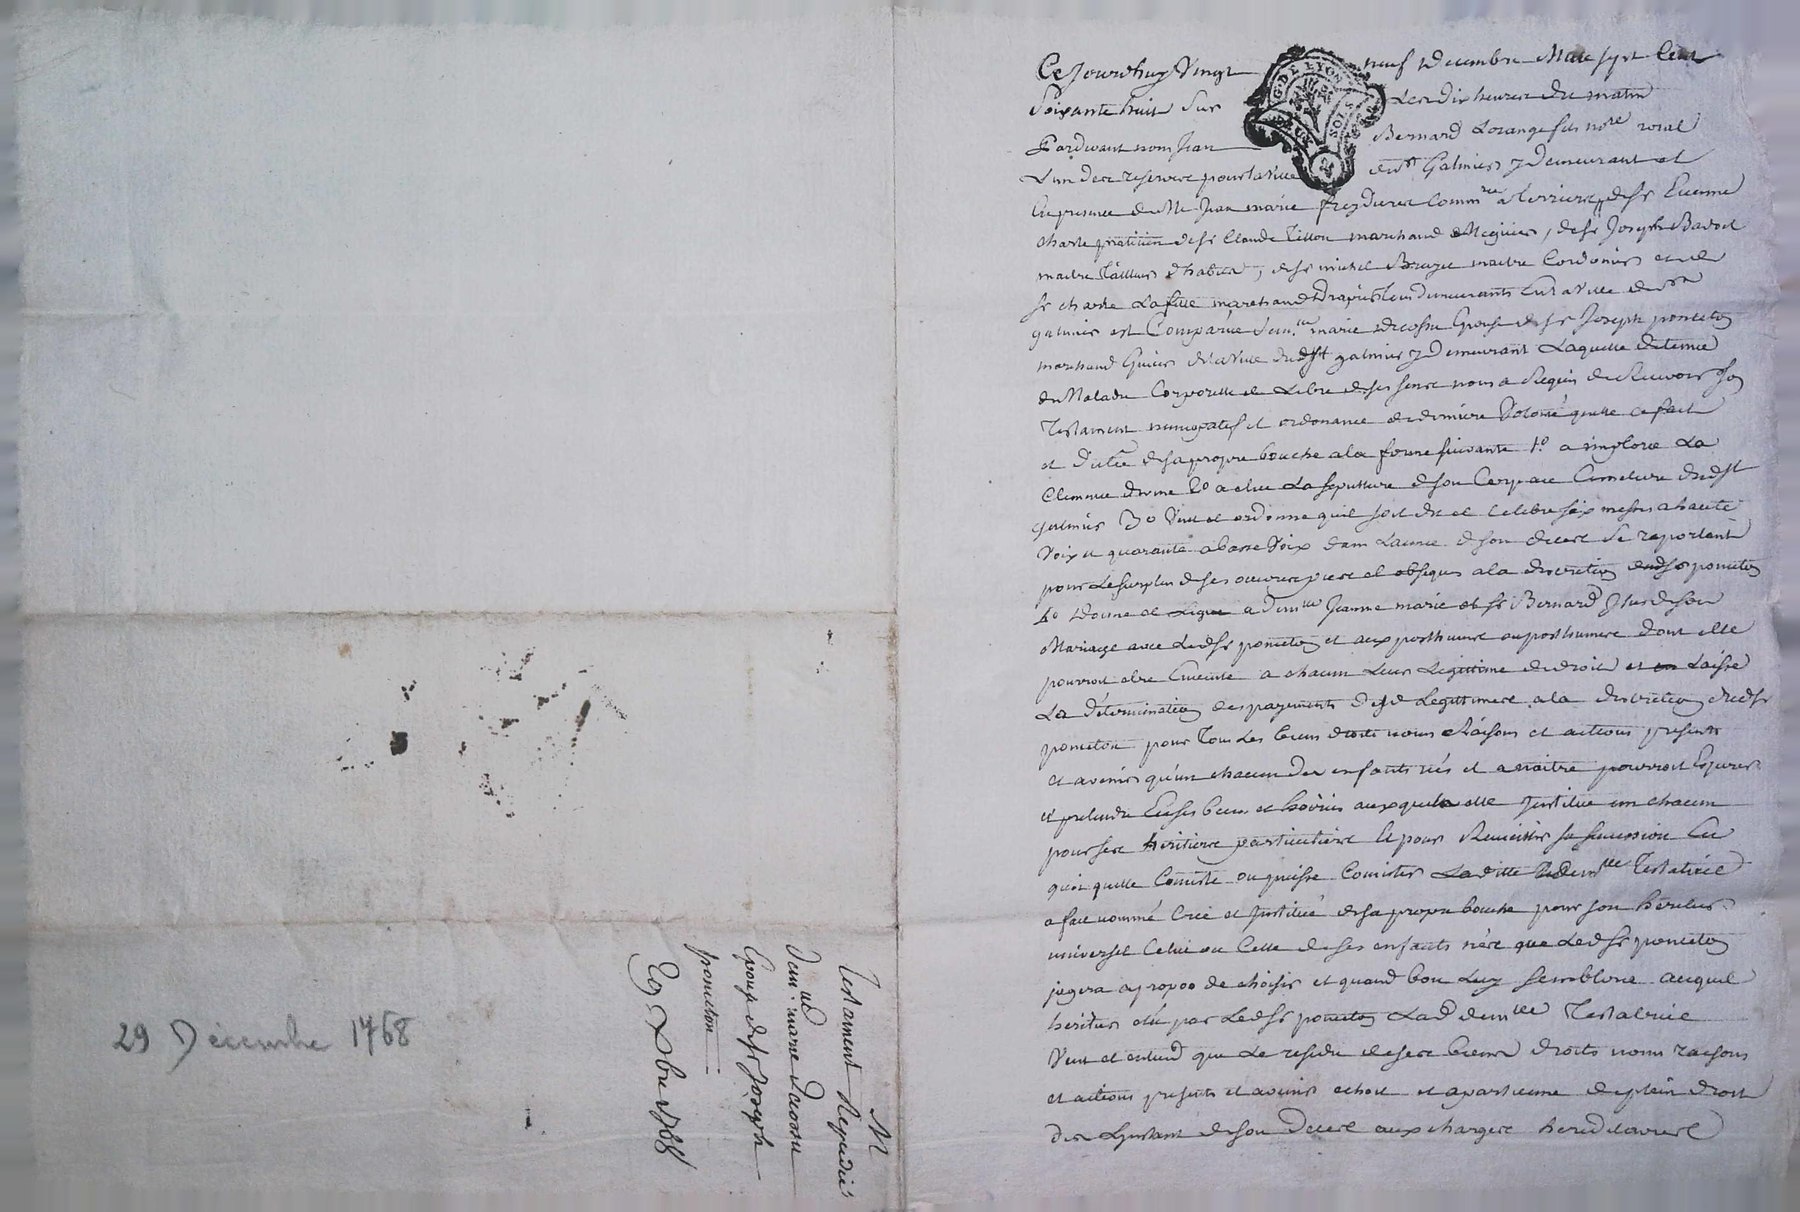 29 Décembre 1768
M
Testament Expedié
Dem.lle marie Decossu
Epouse de sr Joseph
ponceton
29 Xbre 1768
G. DE LYON
SOLS
Ce Jourdhuy Vingt neuf Decembre Mille sept Cent
Soixante huit Sur Les dix heures du matin
Pardevant nous Jean Bernard Lorange fils nore roial
L'un des reservés pour la Ville de St Galmier y Demeurant et
En presence de Me Jean marie Comm.re a terriers, de Sr Etienne
Charle praticien de Sr Claude Tillon marchand Megicier, de Sr Joseph
maitre tailleur d'habits, de Sr michel maitre Cordonier et de
Sr charle Lafille marchand Drapier tous demeurants En la Ville de St
galmier est Comparüe Dem.lle marie Decossu Epouse de Sr Joseph ponceton
marchand Epicier de la Ville dudt St galmier y Demeurant Laquelle detenue
de Maladie Corporelle et Libre de ses sens nous a Requis de Recevoir son
Testament nuncupatif et ordonance de derniere Volonté quelle a fait
et dicté de sa propre bouche a la forme suivante 1.o a imploré La
Clemence divine 2o a elue La sepulture de son Corps au Cimetiere dudt St
galmier 3o Veut et ordonne quil soit dit et Celebré six messes a haute
Voix et quarante a basse Voix dans Lannee de son deces Se raportant
pour Le surplus de ses oeuvres pies et obseques a la discretion dudSr ponceton
4o Donne et Legue a Demlle Jeanne marie et Sr Bernard de son
Mariage avec LedSr ponceton et aux posthumes ou posthumes dont elle
pourroit etre Enceinte a chacun Leur Legittime de droit et Laisse
La détermination des payements desd Legittimes a la discretion dudSr
ponceton pour Tous Les biens droits noms Raisons et actions presents
et avenir qu'un chacun des enfants nés et a naitre pourroit Esperer
et pretendre En ses biens et hoirie auxquels elle Institue un chacun
pour ses heritiers particuliers Et pour Recueillir sa succession En
quoi quelle Consiste ou puisse Consister Laditte Demlle Testatrice
a fait nommé Créé et Institué de sa propre bouche pour son heritier
universel Celui ou Celle de ses enfants nés que LedSr ponceton
jugera apropos de choisir et quand bon Luy Semblera auquel
heritier elu par LedSr ponceton LadDemlle Testatrice
Veut et entend que Le residu de ses biens droits noms raisons
et actions presents et avenir echoit et apartienne de plein droit
des Linstant de son Deces aux charges hereditaires